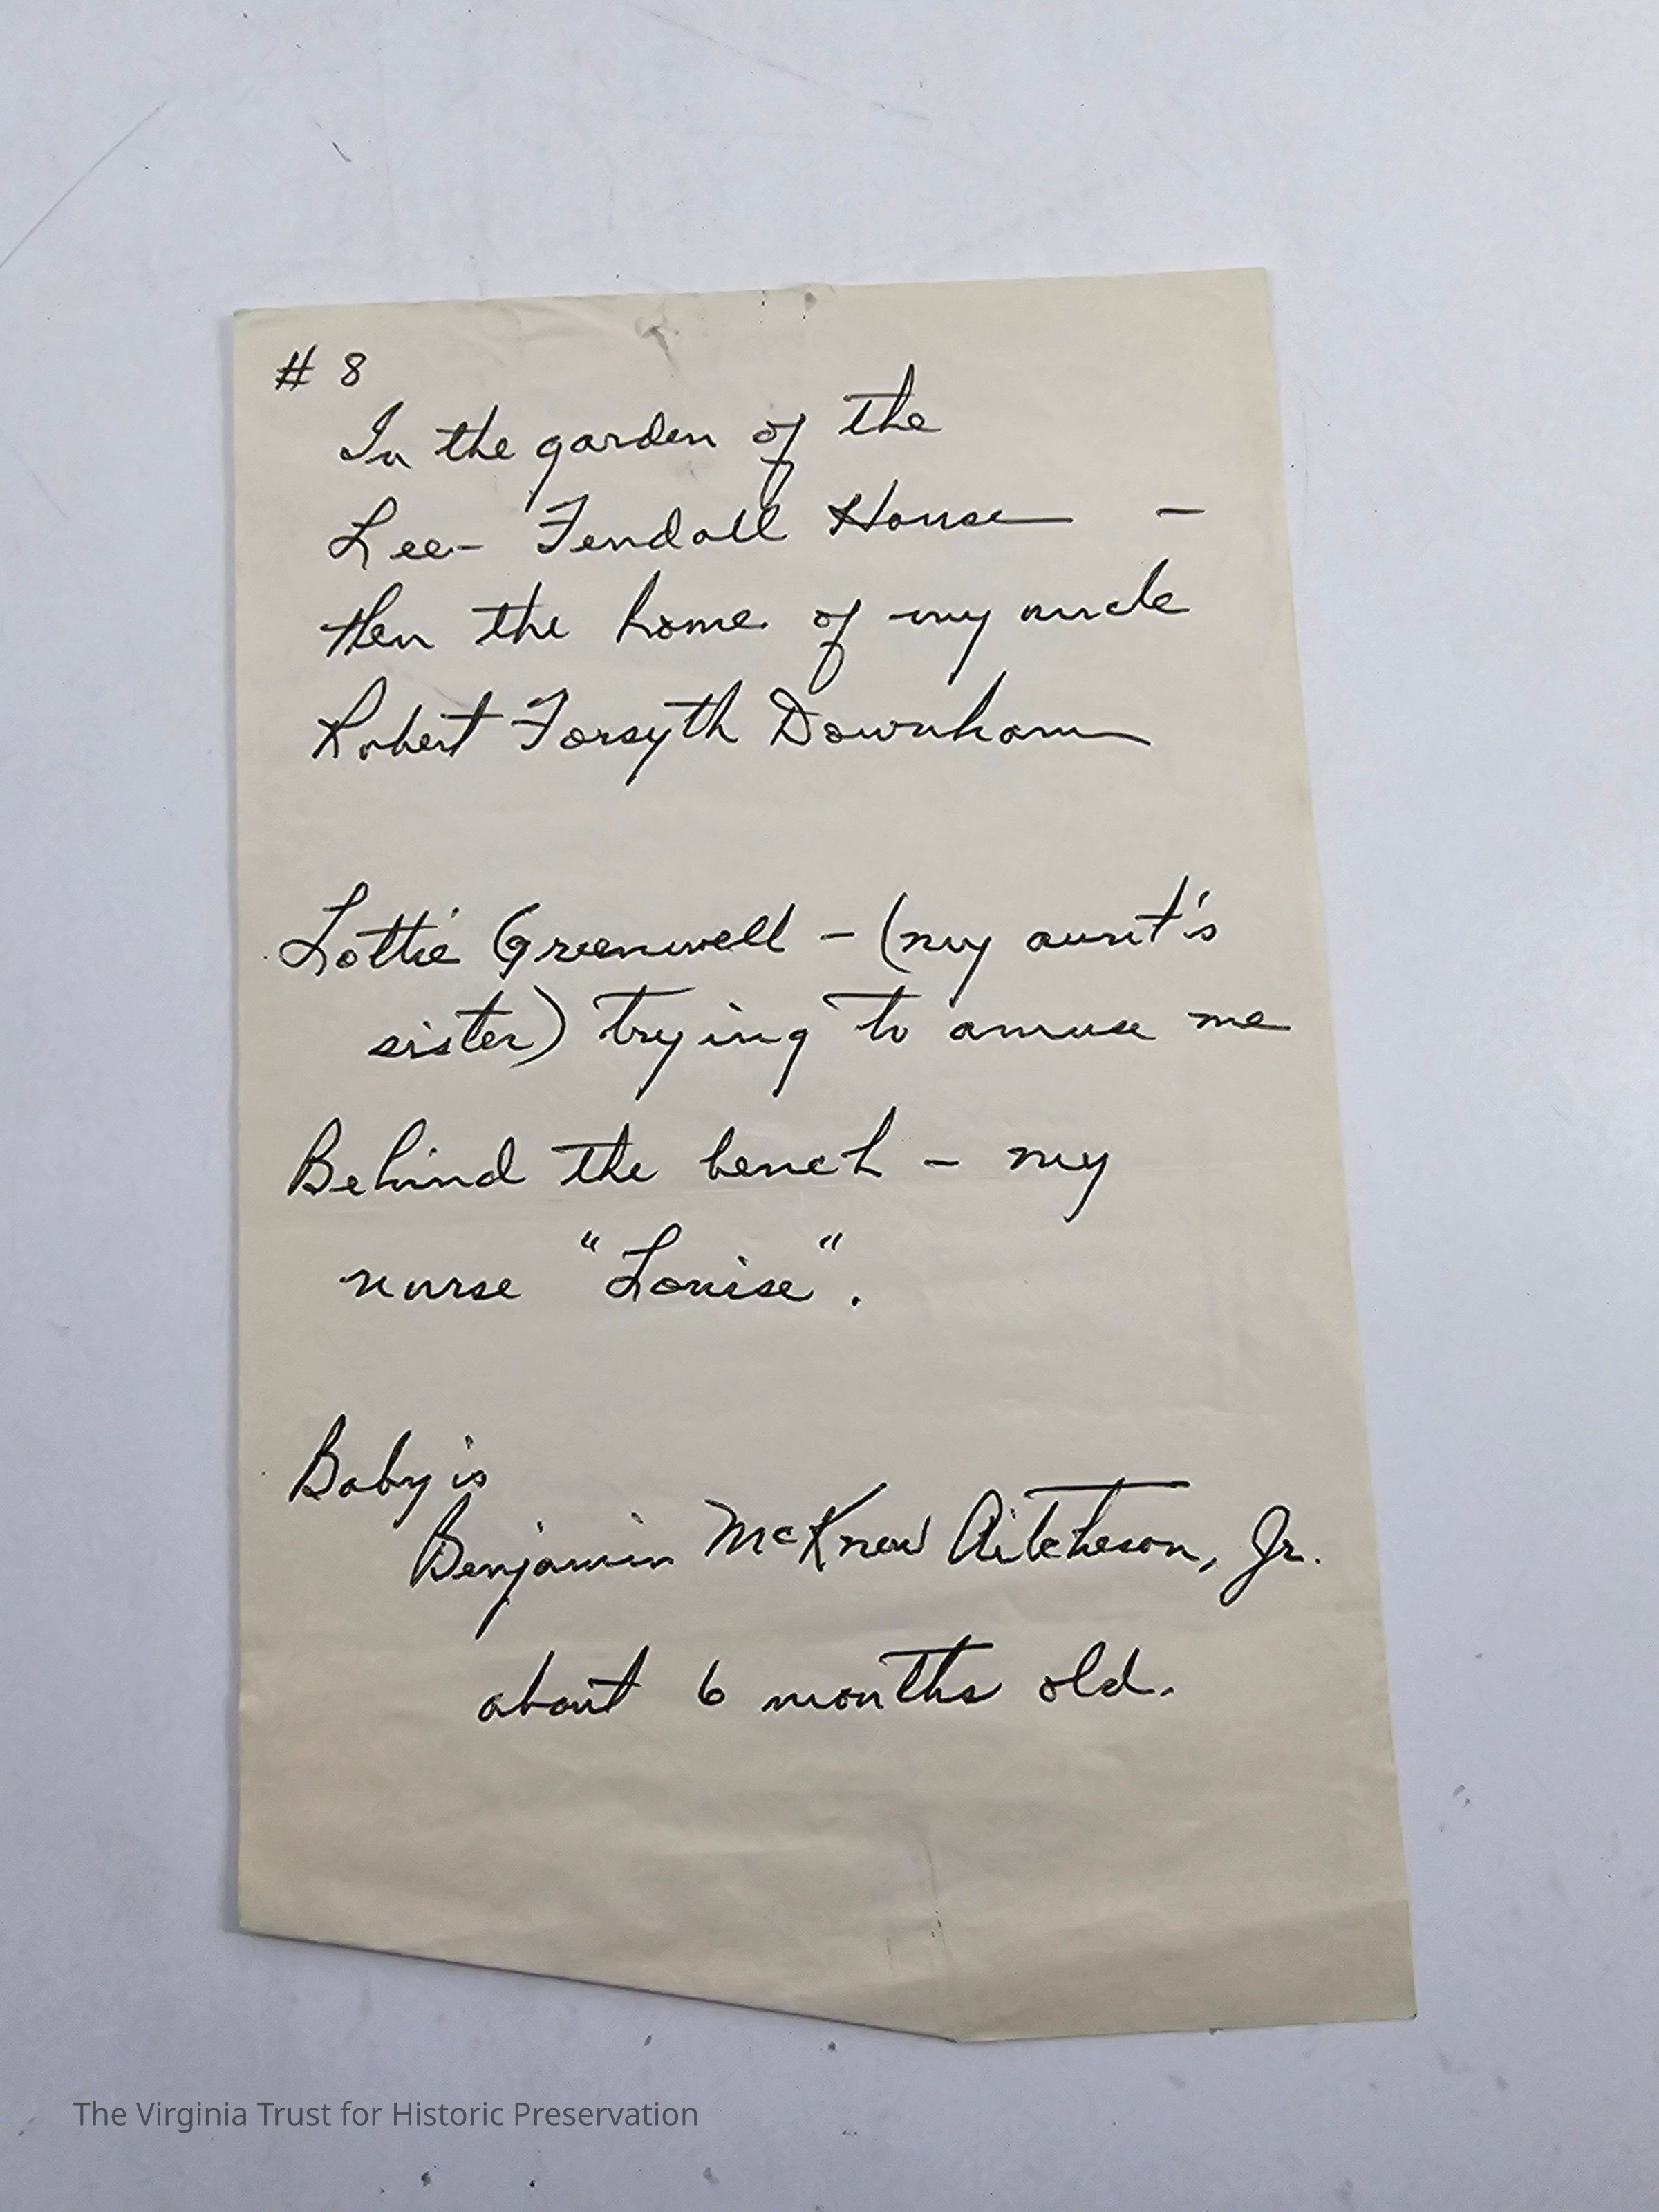 # 8
In the garden of the
Lee- Fendall House -
then the home of my uncle
Robert Forsyth Downham
Lottie Greenwell - (my aunt's
sister) trying to amuse me
Behind the bench - my
nurse "Louise".
Baby is
Benjamin McKnew Aitcheson, Jr.
about 6 months old.
The Virginia Trust for Historic Preservation